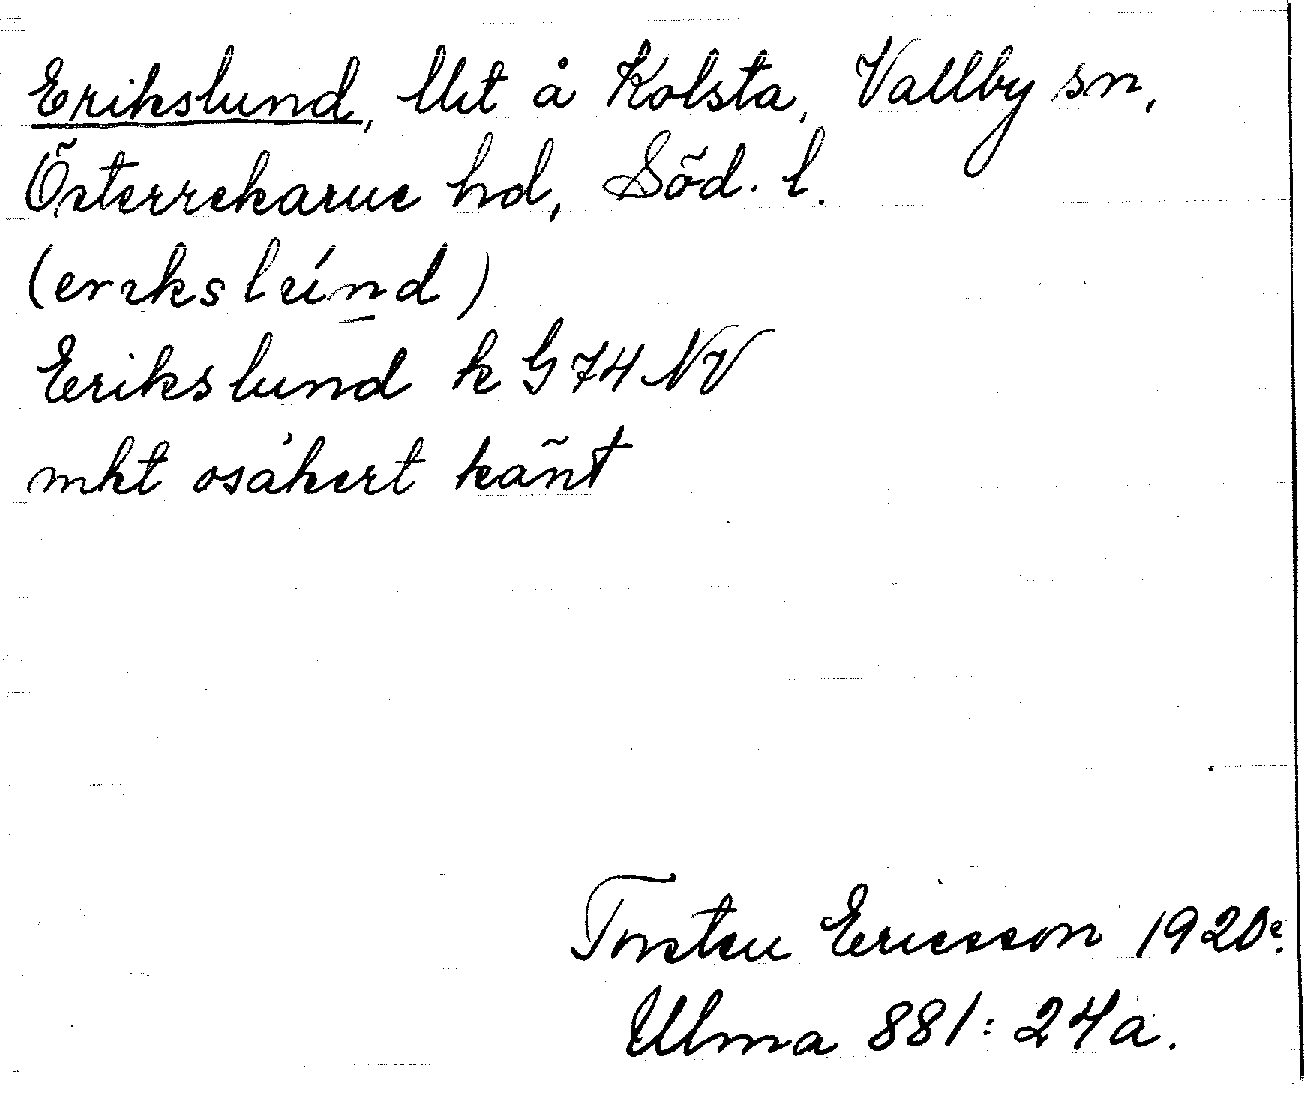 Erikslund, Utt å Kolsta, Vallby sn,
Österrekarne hd, Söd. l.
(erikslúnd)
Erikslund k G 74 NV
mkt osäkert känt
Torsten Ericsson 1920.
Ulma 881:24a.